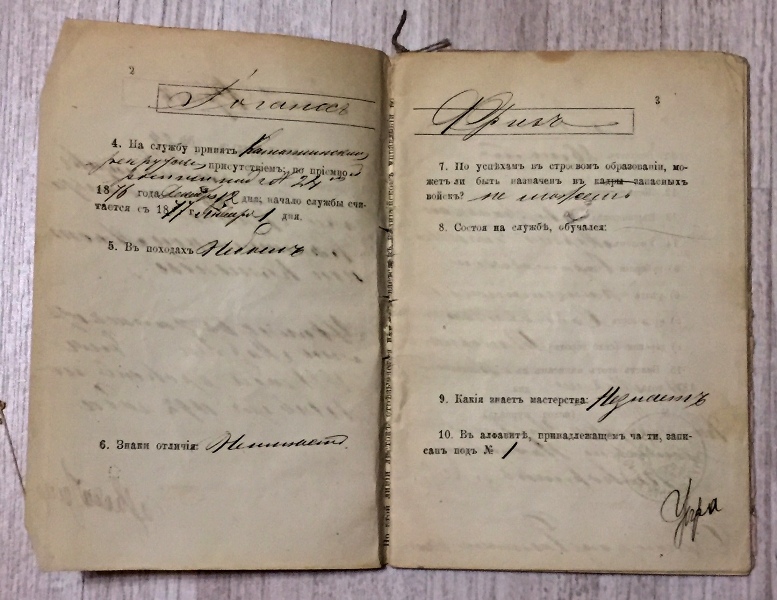 2
Іоганасъ
4. На службу принятъ Камышинскимъ
рекрутскимъ присутствіемъ, по пріемной
росписи подъ № 24
1876 года Декабря 12 дня; начало службы счи-
тается съ 1877 г. Января 1 дня.
5. Въ походахъ Небылъ
6. Знаки отличія: Неимѣетъ
3
Фризъ
7. По успѣхамъ въ строевомъ образованіи, мо-
жетъ ли быть назначенъ въ кадры запасныхъ
войскъ? не можетъ
8. Состоя на службѣ, обучался:
9. Какія знаетъ мастерства: Незнаетъ
10. Въ алфавитѣ, принадлежащемъ части, запи-
санъ подъ № 1